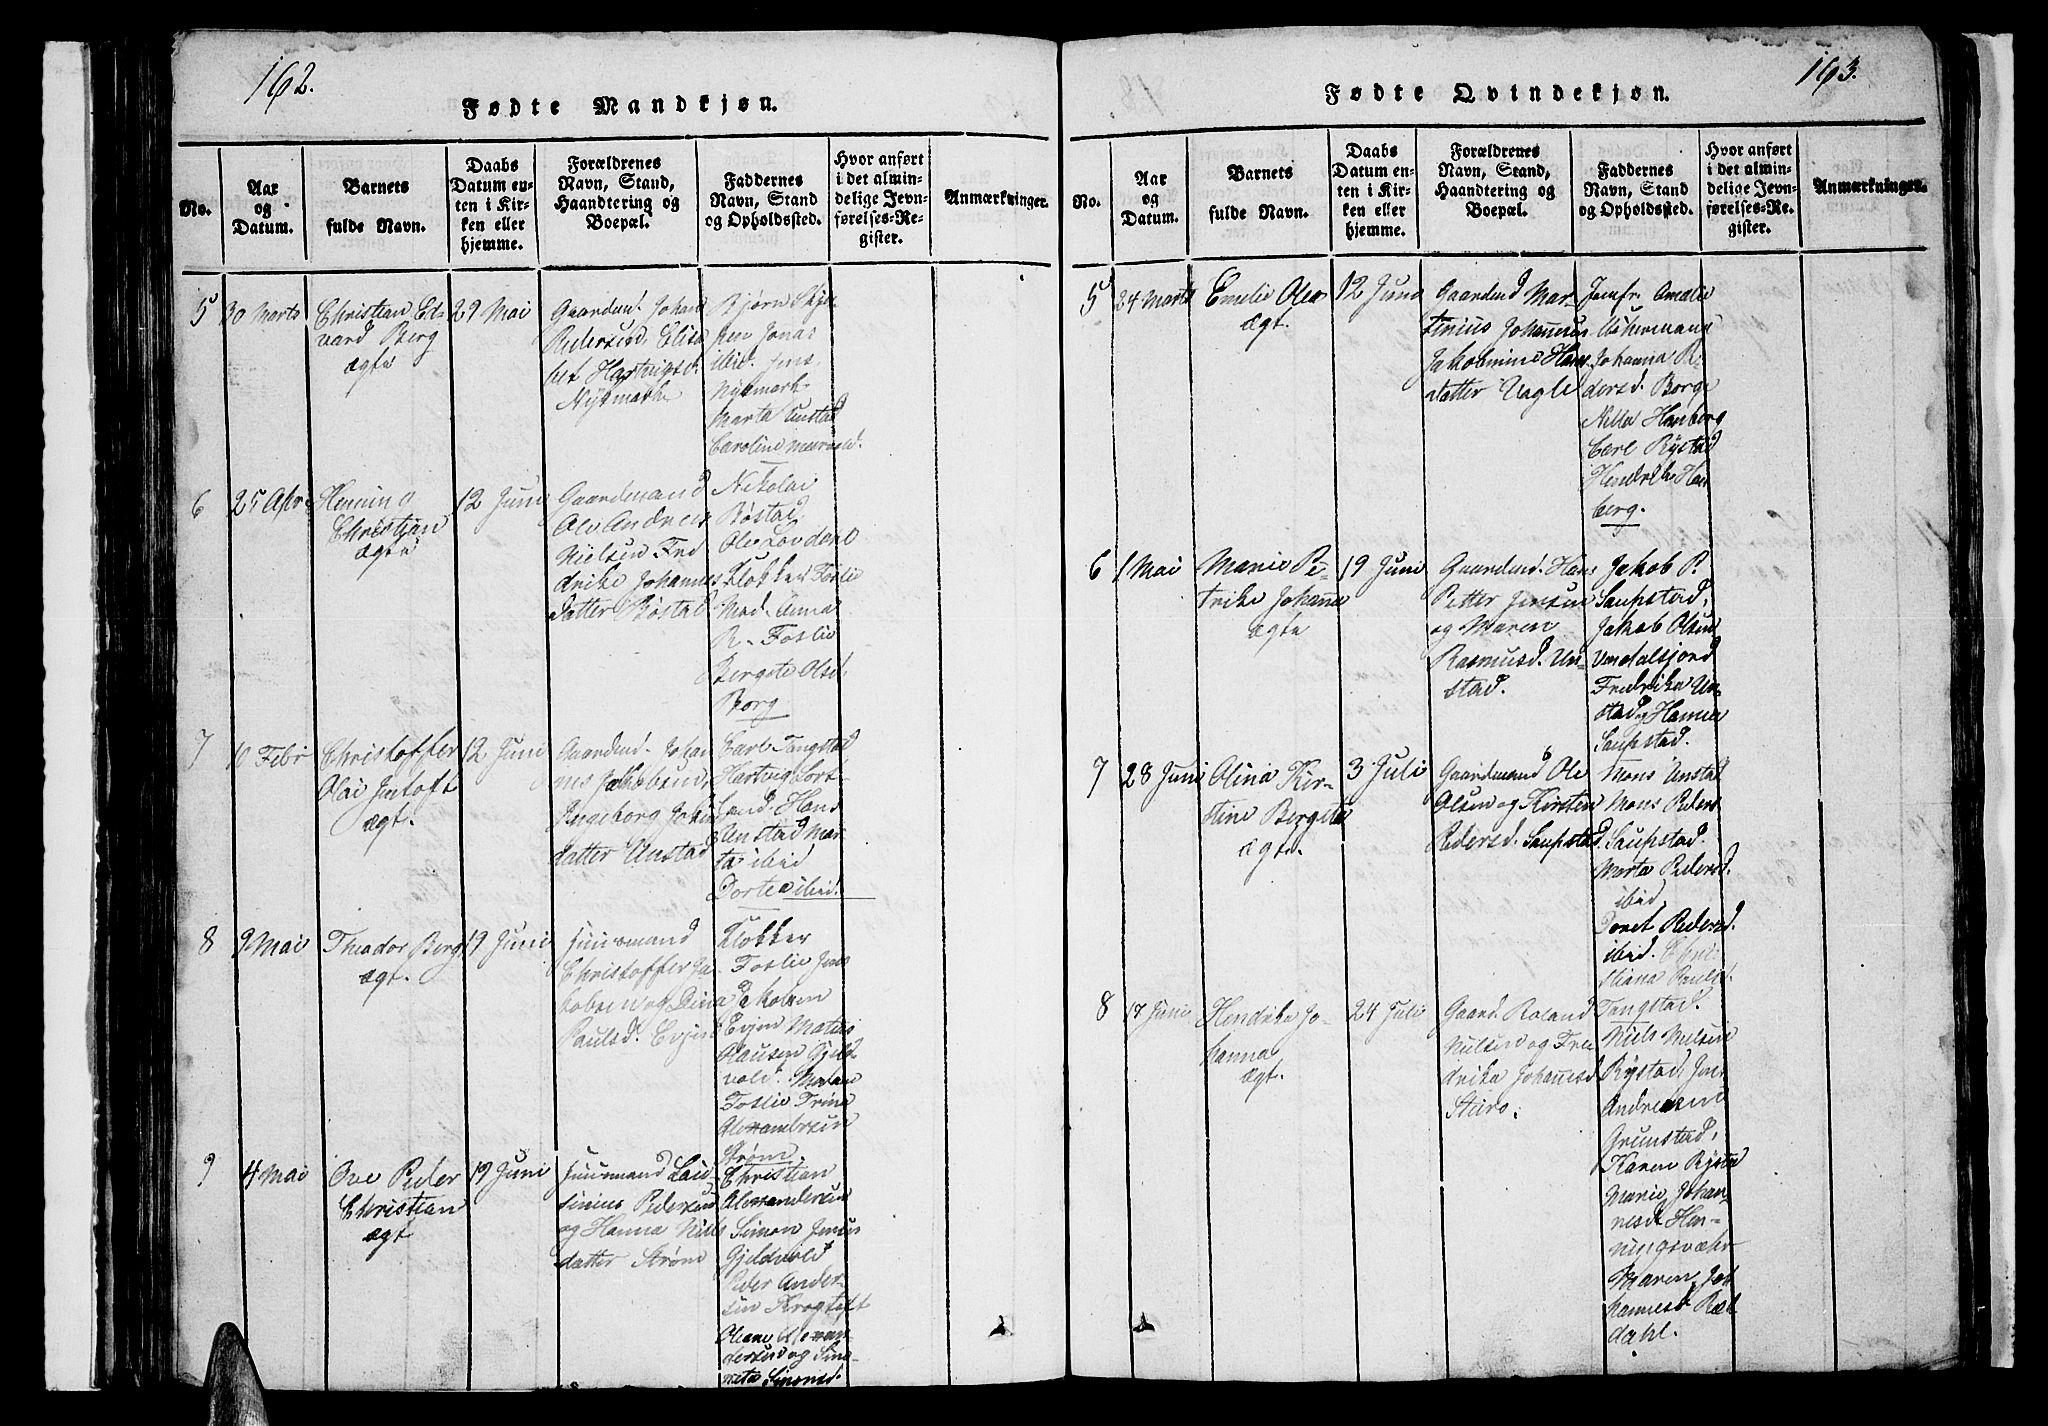 162.
Fødte Mandkjøn.
No.
Aar
og
Datum.
Barnets
fulde Navn.
Daabs
Datum en-
ten i Kir-
ken eller
hjemme.
Forældrenes
Navn, Stand,
Haandtering og
Boepæl.
Faddernes
Navn, Stand
og Opholdssted.
Hvor anført
i det almin-
delige Jevn-
førelses-Re-
gister.
Anmærkninger.
5
30 Marts
Christian Ed-
vard Berg
ægte
29 Mai
Gaardmd. Johan
Pedersen, Elisa
bet Hartvigsd.
Nykmark
Bjørn
Jonas
ibid. Jens
Nykmark
Marta Unstad
Caroline
6
25 Apr
Henning
Christian
ægte
12 Juni
Gaardmand
Ole Andreas
Nielsen Fre
drike Johannes
datter Bøstad
Nikolai
Bøstad,
Ole Lovdahl
Klokker Foslie
Mad. Anna
R. Foslie
Bergete Olsd.
Borg
7
10 Febr
Christoffer
Olai Jentoft
ægt.
12 Juni
Gaardmd. Johan
nes Jakobsen,
Ingeborg Johns
datter Unstad
Carl Tangstad
Hartvig Sort-
land. Hans
Unstad Mar-
ta ibid
Dortea ibid.
8
9 Mai
Theodor Berg
ægt.
19 Juni
Huusmand
Christoffer Ja
kobsen og Dina
Paulsd. Evjen
Klokker
Foslie Jens
Jakobsen
Evjen Matius
Clausen Gjeld-
vold. Malene
Foslie Trine
Alexandersen
Strøm.
9
4 Mai
Ove Peder
Christian
ægt
19 Juni
Huusmand Lau-
sinius Pedersen
og Hanna Niels
datter Strøm
Christian
Alexandersen
Simon Jensen
Gjeldvold
Peder Ander-
sen Krogtoft
Oleane Alexan-
dersen og Sine-
Simonsd.
163.
Fødte Qvindekjøn.
No.
Aar
og
Datum.
Barnets
fulde Navn.
Daabs
Datum en-
ten i Kir-
ken eller
hjemme.
Forældrenes
Navn, Stand,
Haandtering og
Boepæl.
Faddernes
Navn, Stand
og Opholdssted.
Hvor anført
i det almin-
delige Jevn-
førelses-Re-
gister.
Anmærkninger.
5
24 Marts
Emelie Olea
ægt.
12 Juni
Gaardmd Mar-
tinius Johannesen
Jakobmine Hans
datter Vagle
Jomfr. Amalie
Johanna Pe
dersd. Borge
Nilla Hamberg
Carl Rystad
Hendrik Ham
berg.
6
1 Mai
Marie Pe-
trike Johanna
ægte
19 Juni
Gaardmd. Hans
Petter Jensen
og Maren
Rasmusd. Un-
stad.
Jakob P.
Saupstad,
Jakob Olsen
Fredrika Un-
stad og Hanna
Saupstad.
7
28 Juni
Olina Kir-
stine Bergete
ægte.
3 Juli
Gaardmand Ole
Olsen og Kirsten
Pedersd. Saupstad
Mons Unstad
Mons Peders
Saupstad.
Marta Pedersd.
ibid
Doret Pedersd.
ibid. Chri-
stiana Paulsd.
Tangstad.
8
17 Juni
Hendrika Jo-
hanna
ægt.
24 Juli
Gaard. Roland
Nilsen og Fre
drika Johannesd
Steiro.
Niels Nielsen
Rystad, Jens
Andreasen
Grunstad,
Karen Rystad
Marie Johan-
nesd Hen-
ningsvæhr
Maren Jo
hannesd Ræl
dahl.